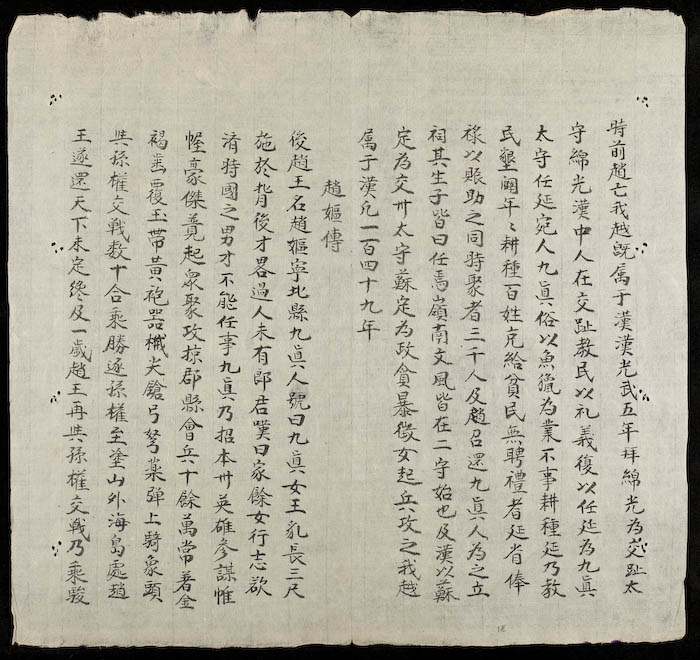 時前趙亡我越既属于漢漢光武五年拜綿光為交趾太
守綿光漢中人在交趾教民以礼義復以任延為九真
太守任延宛人九真俗以魚獵為業不事耕種延乃教
民墾闢年〻耕種百姓充給貧民無聘禮者延省俸
祿以賑助之同時聚者三千人及趙召還九真人為之立
祠其生子皆曰任焉嶺南文風皆在二守始也及漢以蘇
定為交州太守蘇定為政貪暴徵女起兵攻之我越
属于漢凢一百四十九年
趙嫗傳
後趙王名趙嫗寧北縣九真人號曰九真女王乳長三尺
施於背後才畧過人未有郎君嘆曰家餘女行志欲
淆特國之男才不能任事九真乃招本州英雄參謀帷
幄豪傑竟起衆聚攻掠郡縣會兵十餘萬常著金
褐齒覆玉帶黃袍器械尖鎗弓弩藥彈上騎象頭
與孫權交戰数十合乘勝逐孫權至塗山外海島處趙
王遂還天下未定終及一歲趙王再與孫權交戰乃乘駿
18